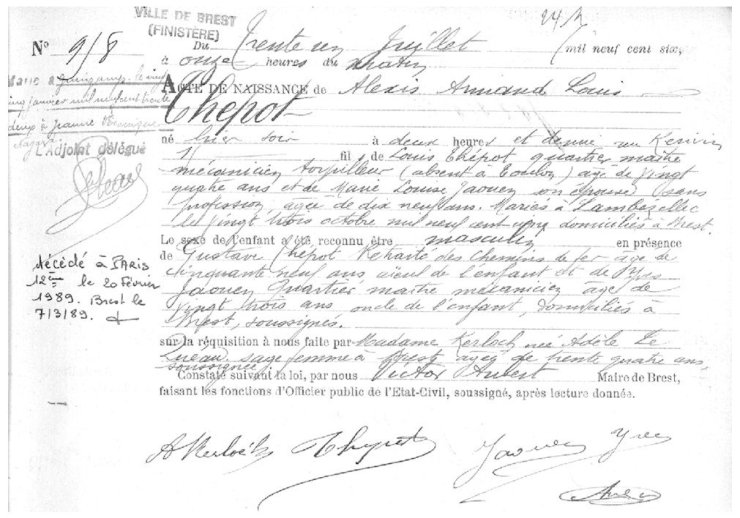 VILLE DE BREST
(FINISTÈRE)
N° 918
Du trente un Juillet (mil neuf cent six,
à onze heures du matin
ACTE DE NAISSANCE de Alexis Armand Louis
Thépot
né hier soir à deux heures et demie
fils de Louis Thépot quartier maître
mécanicien torpilleur (absent à Toulon) âgé de vingt
quatre ans et de Marie Louise Jaouen son épouse sans
profession, âgée de dix neuf ans. Mariés à Lambézellec
le vingt trois octobre mil neuf cent cinq domiciliés à Brest.
Le sexe de l'enfant a été reconnu être masculin en présence
de Gustave Thépot Retraité des chemins de fer âgé de
cinquante neuf ans aïeul de l'enfant et de Yves
Jaouen Quartier maître mécanicien âgé de
vingt trois ans, oncle de l'enfant, domiciliés à
Brest, soussignés.
sur la réquisition à nous faite par Madame Kerloch née Adèle Le
sage femme à Brest, âgée de trente quatre ans,
soussignée.
Constaté suivant la loi, par nous Victor Aubert Maire de Brest,
faisant les fonctions d'Officier public de l'Etat-Civil, soussigné, après lecture donnée.
Marié à Guingamp le
janvier mil neuf cent trente
deux à Jeanne
L'Adjoint délégué
Décédé à PARIS
12ème le 20 Février
1989. Brest le
7/3/89.
A Kerloch Thépot Jaouen Yves